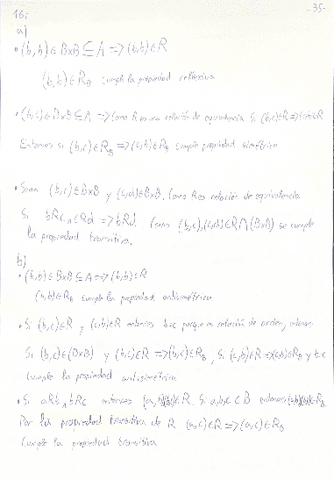 16:
-35-
a)
• (b,b)∈B×B⊆A => (b,b)∈R
(b,b)∈R_B cumple la propiedad reflexiva
• (b,c)∈B×B⊆A => Como R es una relación de equivalencia. Si (b,c)∈R =>
Entonces si (b,c)∈R_B => (c,b)∈R_B cumple propiedad simétrica
• Sean (b,c)∈B×B y (c,d)∈B×B. Como R es relación de equivalencia
Si bRc, cRd => bRd. Como (b,c),(c,d)∈R∩(B×B) se cumple
la propiedad transitiva.
b)
• (b,b)∈B×B⊆A => (b,b)∈R
(b,b)∈R_B cumple la propiedad antisimétrica
• Si (b,c)∈R y (c,b)∈R entonces b=c porque es relación de orden,
Si (b,c)∈(B×B) y (b,c)∈R => (b,c)∈R_B, Si (c,b)∈R => (c,b)∈R_B y b=c
Cumple la propiedad antisimétrica
• Si aRb, bRc entonces ∈R. Si a,b,c⊂B entonces ∈R_B
Por la propiedad transitiva de R (a,c)∈R => (a,c)∈R_B
Cumple la propiedad transitiva